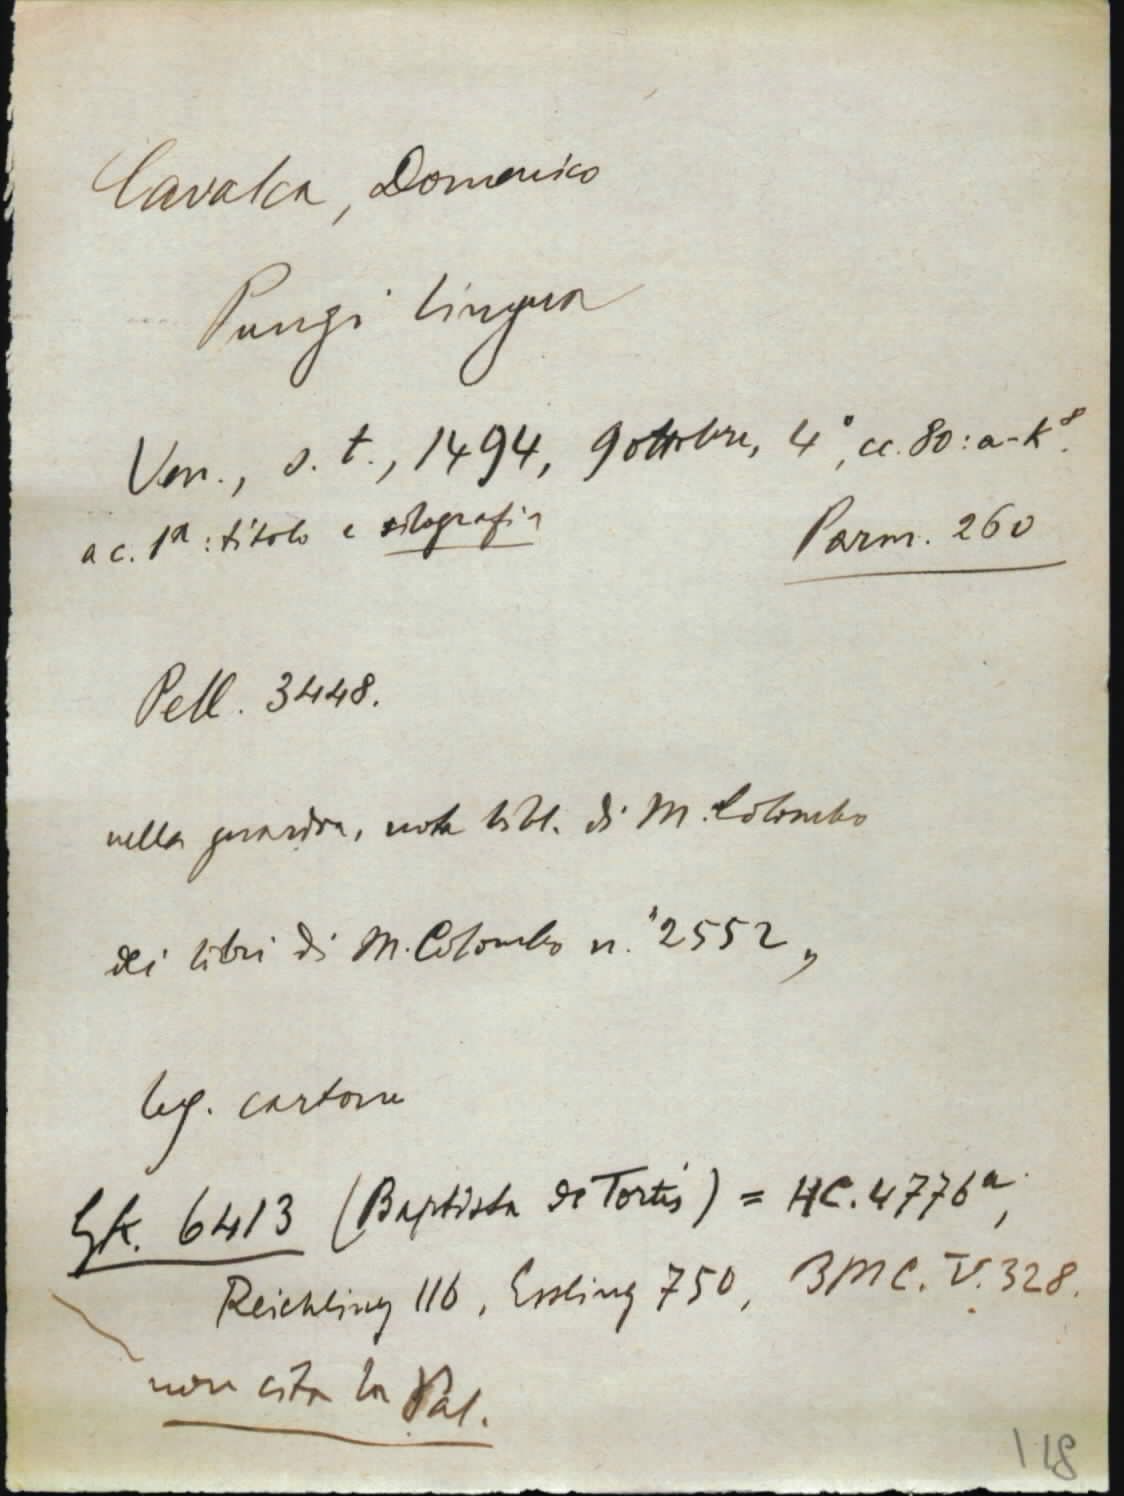 Cavalca, Domenico
Pungi lingua
Ven., s. t., 1494, 9 ottobre, 4°, cc. 80: a-k⁸.
a c. 1ᵃ: titolo e silografia
Parm. 260
Pell. 3448.
nella guardia, nota bibl. di M. Colombo
dei libri di M. Colombo n. "2552„
leg. cartone
GK. 6413 (Baptista de Tortis) = HC. 4776ᵃ,
Reichling 116, Essling 750, BMC. V. 328.
non cita la Pal.
118